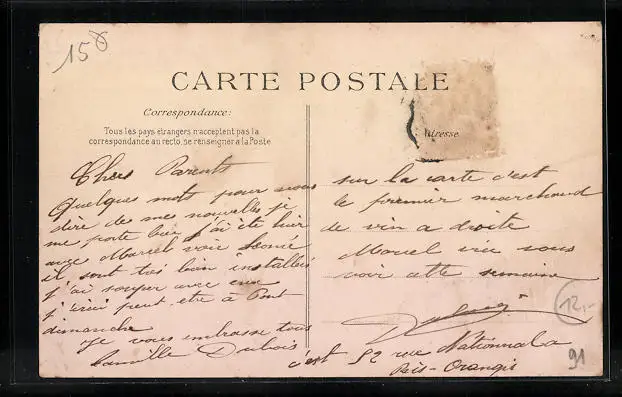 158
CARTE POSTALE
Correspondance:
Tous les pays étrangers n'acceptent pas la
correspondance au recto, se renseigner à la Poste
Adresse
Chers Parents
Quelques mots pour vous
dire de mes nouvelles je
me porte bien j'ai été hier
avec Marcel voir
il sont tès bien installés
j'ai souper avec eux
j'irai peut etre a Pont
dimanche
Je vous embrasse tous
Camille Dubois
sur la carte c'est
le premier marchand
de vin a droite
Marcel vous
voir cette semaine
c'est 52 rue Nationnal a
Ris-Orangis
12,-
91